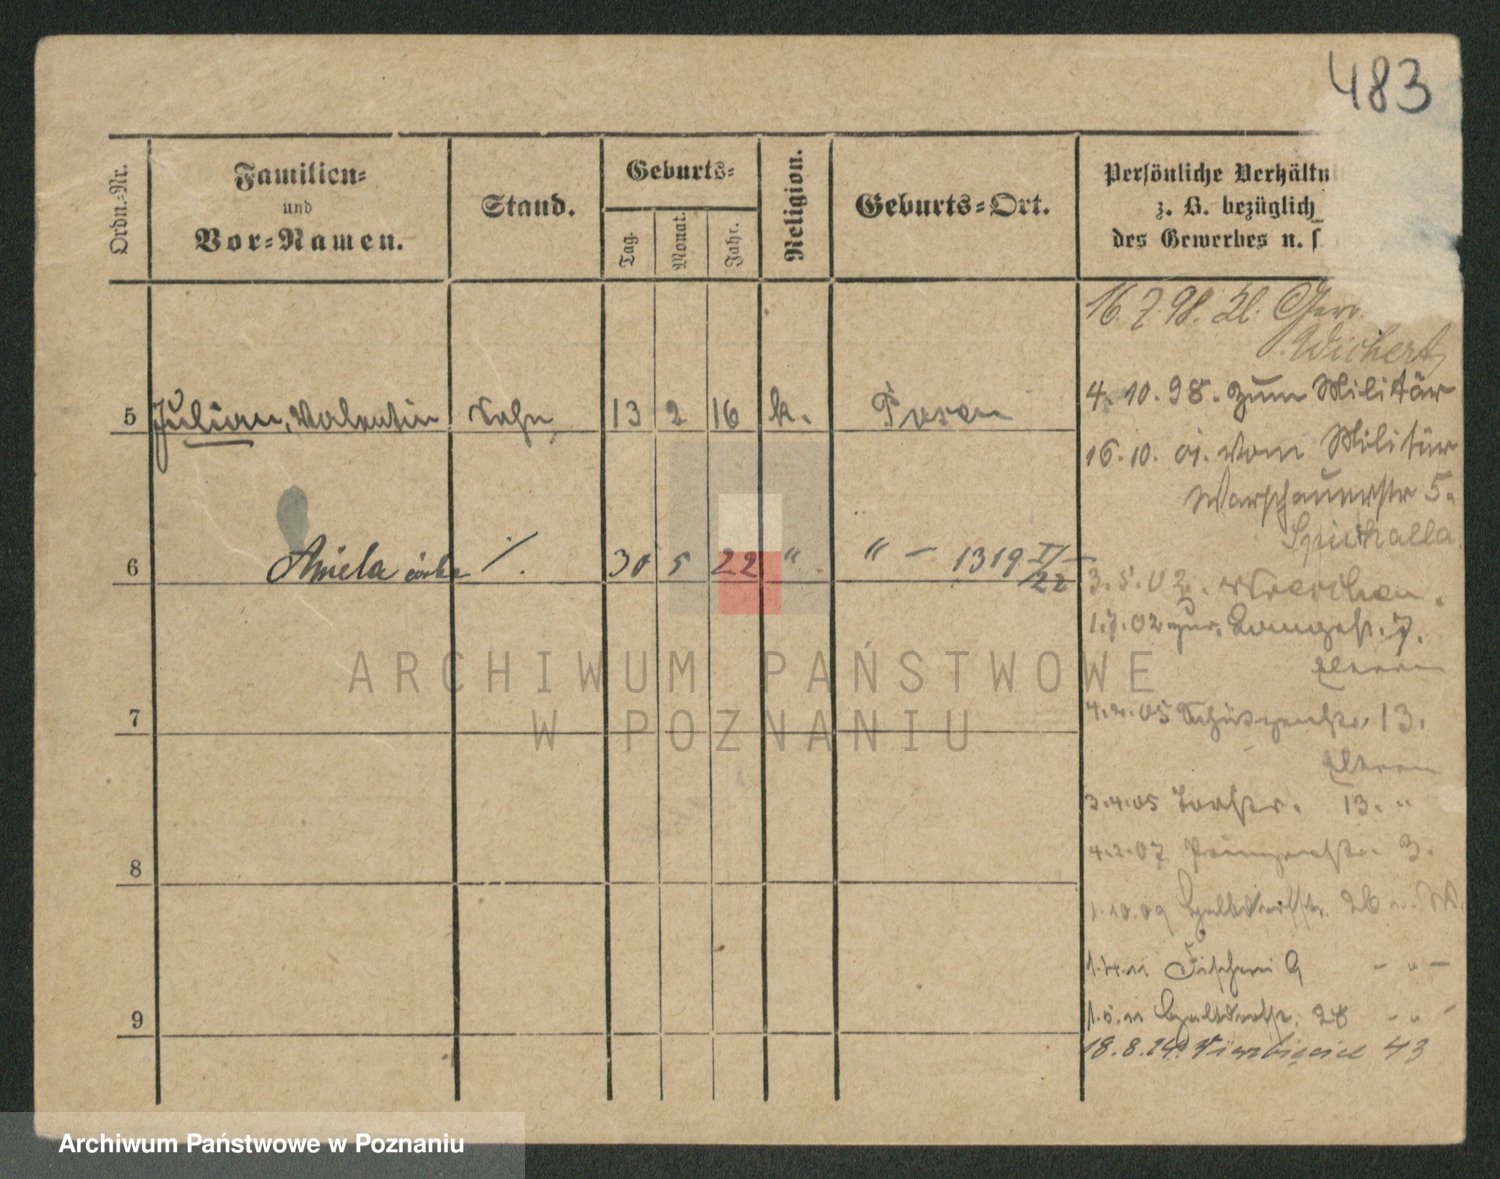 483
Ordn.-Nr.
Familien-
und
Vor-Namen.
Stand.
Geburts-
Tag.
Monat.
Jahr.
Religion.
Geburts-Ort.
Persönliche Verhältn
z. B. bezüglich
des Gewerbes u. s
16.7.98.
Wichert
4.10.98. zum Militär
5 Julian, Valentin Sohn 13 2 16 k. Posen
16.10. 01. vom Militär
Warschauerstr 5.
Spichalla
6 Aniela córka ./. 30 5 22 " " — 1319 V/22
3.5.02.
1.7.02 zur. Langestr. 7.
Eltern
7
4.2.05 Schützenstr. 13.
Eltern
3.4.05 Torstr. 13. "
8
4.2.07 3.
1.10.09 Halbdorfstr. 26
1.4.11 Fischerei 9 - " -
9
1.5.11 Halbdorfstr. 28 - " -
18.8.24. Wierzbięcice 43
ARCHIWUM PAŃSTWOWE
W POZNANIU
Archiwum Państwowe w Poznaniu